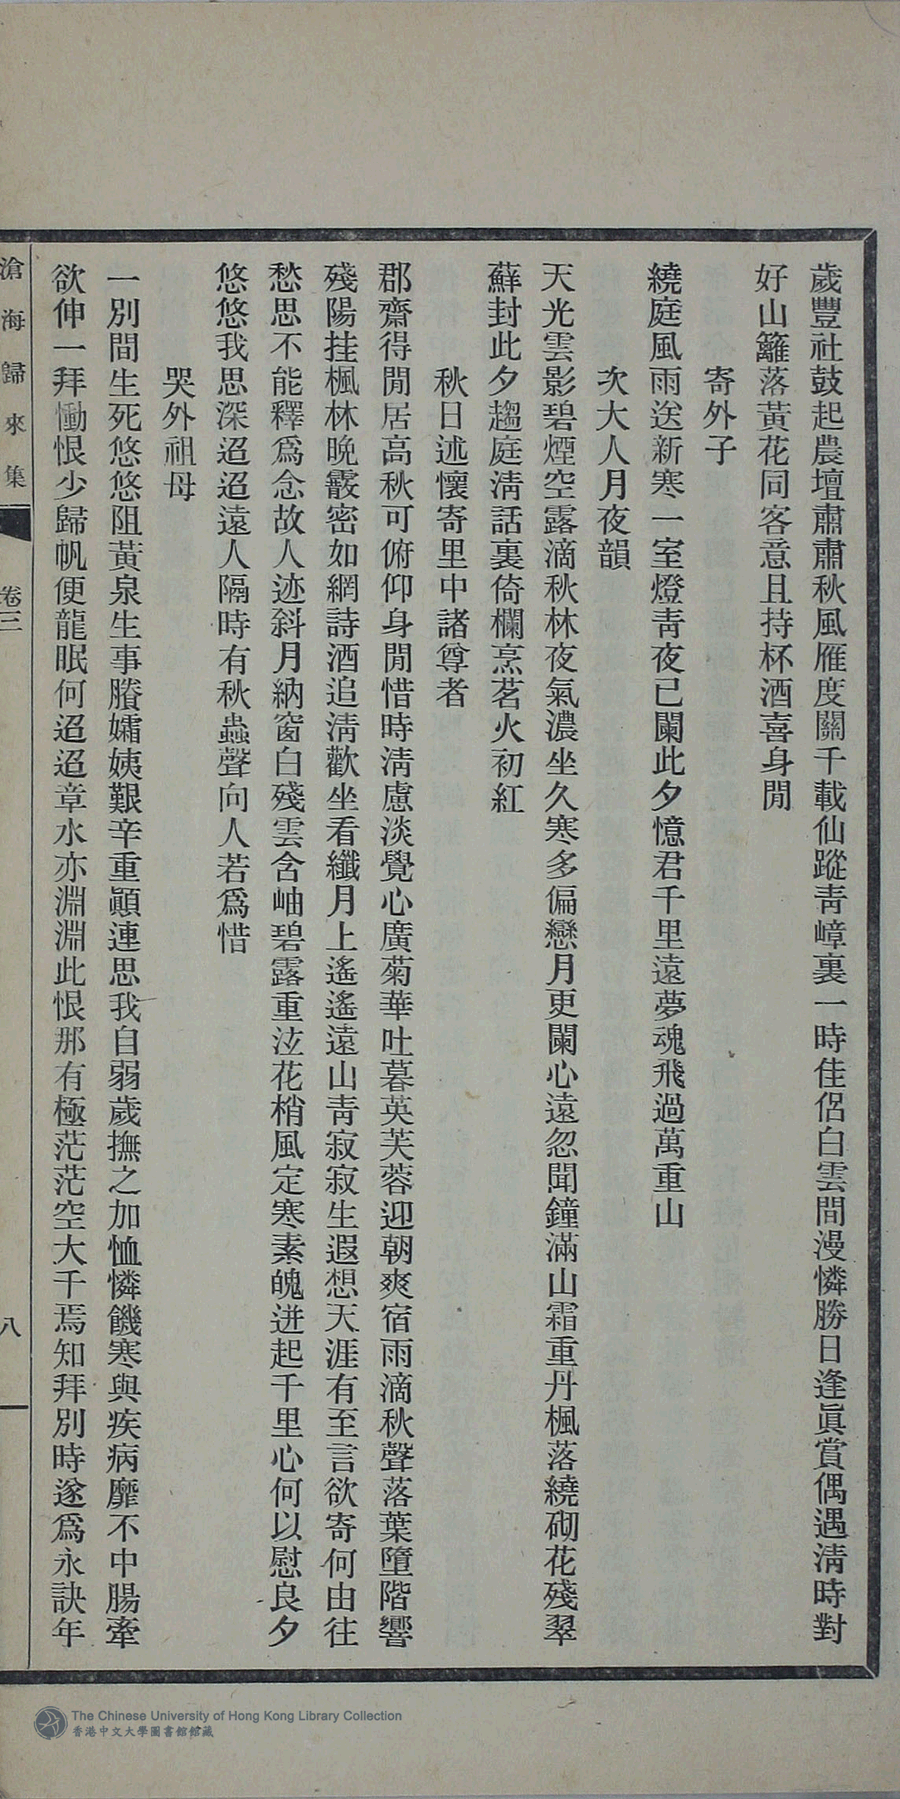 歲豐社鼓起農壇肅肅秋風雁度關千載仙蹤靑嶂裏一時佳侶白雲間漫憐勝日逢眞賞偶遇淸時對
好山籬落黃花同客意且持杯酒喜身閒
寄外子
繞庭風雨送新寒一室燈靑夜已闌此夕憶君千里遠夢魂飛過萬重山
次大人月夜韻
天光雲影碧煙空露滴秋林夜氣濃坐久寒多偏戀月更闌心遠忽聞鐘滿山霜重丹楓落繞砌花殘翠
蘚封此夕趨庭淸話裏倚欄烹茗火初紅
秋日述懷寄里中諸尊者
郡齋得閒居高秋可俯仰身閒惜時淸慮淡覺心廣菊華吐暮英芙蓉迎朝爽宿雨滴秋聲落葉墮階響
殘陽挂楓林晚霞密如網詩酒追淸歡坐看纖月上遙遙遠山靑寂寂生遐想天涯有至言欲寄何由往
愁思不能釋爲念故人迹斜月納窗白殘雲含岫碧露重泫花梢風定寒素魄迸起千里心何以慰良夕
悠悠我思深迢迢遠人隔時有秋蟲聲向人若爲惜
哭外祖母
一別間生死悠悠阻黃泉生事賸孀姨艱辛重顚連思我自弱歲撫之加恤憐饑寒與疾病靡不中腸牽
欲伸一拜慟恨少歸帆便龍眠何迢迢章水亦淵淵此恨那有極茫茫空大千焉知拜別時遂爲永訣年
滄海歸來集
卷三
八
The Chinese University of Hong Kong Library Collection
香港中文大學圖書館館藏